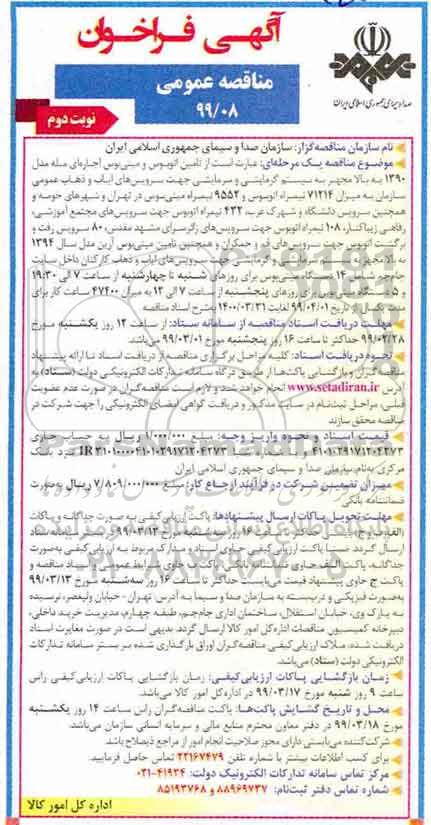 آگهی فراخوان
مناقصه عمومی
۹۹/۰۸
نوبت دوم
صدا و سیمای جمهوری اسلامی ایران
نام سازمان مناقصه‌گزار: سازمان صدا و سیمای جمهوری اسلامی ایران
موضوع مناقصه یک مرحله‌ای: عبارت است از تامین اتوبوس و مینی‌بوس اجاره‌ای مدل
۱۳۹۰ به بالا مجهز به سیستم گرمایشی و سرمایشی جهت سرویس‌های ایاب و ذهاب عمومی
سازمان به میزان ۷۱۲۱۴ نیمراه اتوبوس و ۹۵۵۲ نیمراه مینی‌بوس در تهران و شهرهای حومه و
همچنین سرویس دانشگاه و شهرک غرب، ۴۳۲ نیمراه اتوبوس جهت سرویس‌های مجتمع آموزشی،
رفاهی زیباکنار، ۱۰۸ نیمراه اتوبوس جهت سرویس‌های زائرسرای مشهد مقدس، ۸۰ سرویس رفت و
برگشت اتوبوس جهت سرویس‌های قم و جمکران و همچنین تامین مینی‌بوس آرین مدل سال ۱۳۹۴
به بالا مجهز به گرمایشی جهت سرویس‌های ایاب و ذهاب کارکنان داخل سایت
جام‌جم شامل ۱۴ دستگاه مینی‌بوس برای روزهای شنبه تا چهارشنبه از ساعت ۷ الی ۱۹:۳۰
و ۵ دستگاه برای روزهای پنجشنبه از ساعت ۷ الی ۱۳ به میزان ۴۷۴۰۰ ساعت کار برای
از تاریخ ۹۹/۰۴/۰۱ لغایت ۱۴۰۰/۰۳/۳۱ بشرح اسناد مناقصه
مهلت دریافت اسناد مناقصه از سامانه ستاد: از ساعت ۱۲ روز یکشنبه مورخ
۹۹/۰۲/۲۸ حداکثر تا ساعت ۱۶ روز پنجشنبه مورخ ۹۹/۰۳/۰۱ می‌باشد.
نحوه دریافت اسناد: کلیه مراحل برگزاری مناقصه از دریافت اسناد تا ارائه پیشنهاد
مناقصه‌گران و بازگشایی پاکت‌ها از طریق درگاه سامانه تدارکات الکترونیکی دولت (ستاد) به
آدرس www.setadiran.ir انجام خواهد شد و لازم است مناقصه‌گران در صورت عدم عضویت
قبلی، مراحل ثبت‌نام در سایت مذکور و دریافت گواهی امضای الکترونیکی را جهت شرکت در
مناقصه محقق سازند
قیمت اسناد و نحوه واریز وجه: مبلغ ۱/۰۰۰/۰۰۰ ریال به حساب جاری
نزد بانک
مرکزی به‌نام سازمان صدا و سیمای جمهوری اسلامی ایران
میزان تضمین شرکت در فرآیند ارجاع کار: مبلغ ۷/۸۰۹/۰۰۰/۰۰۰ ریال به‌صورت
ضمانتنامه بانکی
مهلت تحویل پاکات ارسال پیشنهادها: پاکت ارزیابی کیفی به صورت جداگانه و پاکات
حداکثر تا ساعت ۱۶ روز مورخ ۹۹/۰۳/۱۳ ستاد
ارسال گردد ضمناً پاکت ارزیابی کیفی حاوی اسناد و مدارک مربوط به ارزیابی کیفی به‌صورت
جداگانه، پاکت الف حاوی بانکی، پاکت ب حاوی اسناد مناقصه و
پاکت ج حاوی پیشنهاد قیمت می‌بایست حداکثر تا ساعت ۱۶ روز سه‌شنبه مورخ ۹۹/۰۳/۱۳
به‌صورت فیزیکی و دربسته به سازمان صدا و سیما به آدرس تهران - خیابان ولیعصر، نرسیده
به پارک وی، خیابان استقلال، ساختمان اداری جام‌جم، طبقه چهارم، مدیریت خرید داخلی،
دبیرخانه کمیسیون مناقصات اداره کل امور کالا ارسال گردد. بدیهی است در صورت مغایرت اسناد
دریافت شده، ملاک ارزیابی کیفی مناقصه‌گران اوراق بارگذاری شده بر بستر سامانه تدارکات
الکترونیکی دولت (ستاد) می‌باشد.
زمان بازگشایی پاکات ارزیابی کیفی: زمان بازگشایی پاکات ارزیابی کیفی راس
ساعت ۹ روز شنبه مورخ ۹۹/۰۳/۱۷ در اداره کل امور کالا می‌باشد.
محل و تاریخ گشایش پاکت‌ها: پاکت مناقصه‌گران راس ساعت ۱۴ روز یکشنبه
مورخ ۹۹/۰۳/۱۸ در دفتر معاون محترم منابع مالی و سرمایه انسانی سازمان می‌باشد.
شرکت‌کننده می‌بایستی دارای مجوز صلاحیت انجام امور از مراجع ذیصلاح باشد.
برای کسب اطلاعات بیشتر با شماره تلفن ۲۲۱۶۷۴۷۹ تماس حاصل فرمایید.
مرکز تماس سامانه تدارکات الکترونیک دولت: ۴۱۹۳۴-۰۲۱
شماره تماس دفتر ثبت‌نام: ۸۸۹۶۹۷۳۷ و ۸۵۱۹۳۷۶۸
اداره کل امور کالا